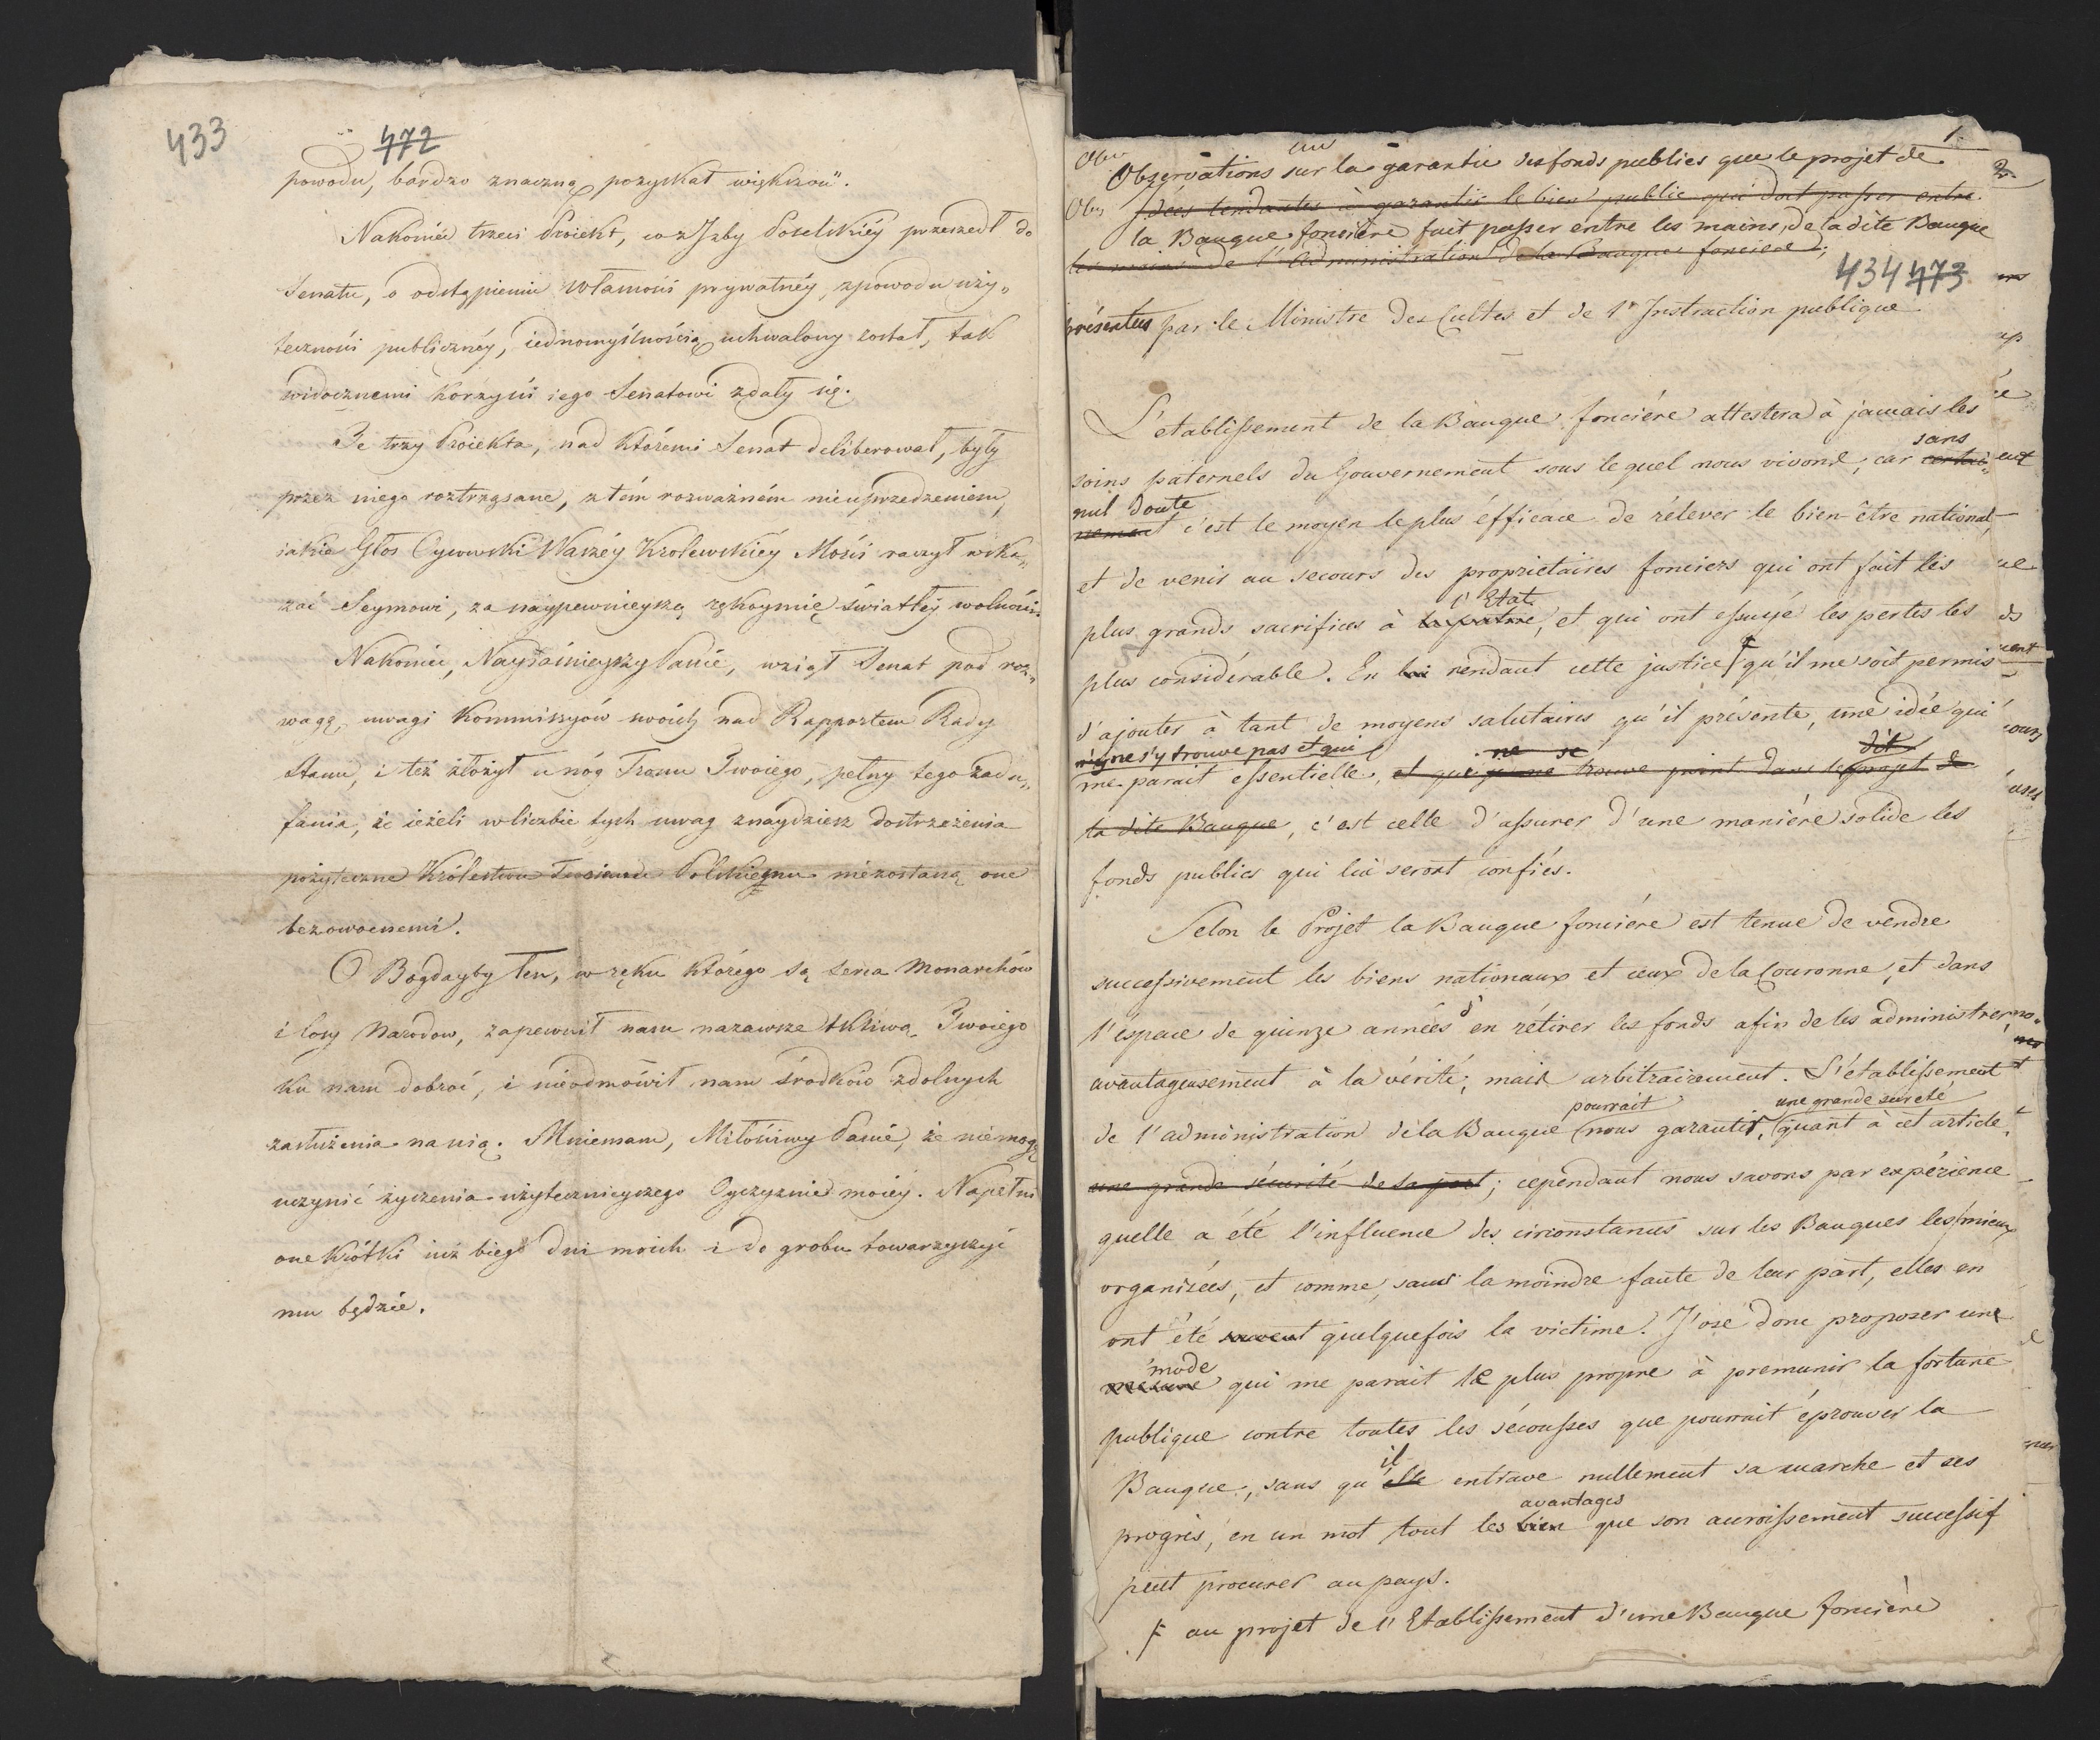 433
472
powodu, bardzo znaczną pozyskał większość.
Nakoniec trzeci Proiekt, co z Izby Poselskiéy przeszedł do
Senatu, o odstąpieniu własności prywatnéy, z powodu uży„
teczności publicznéy, iednomyślnością uchwalony został, tak
widocznemi korzyści iego Senatowi zdały się.
Te trzy Proiekta, nad któremi Senat deliberował, były
przez niego roztrząsane, z tém rozważném nieuprzedzeniem,
iakie Głos Oycowski Waszéy Krolewskiéy Mości raczył wska„
zać Seymowi, za naypewnieyszą rękoymię światłéy wolności.
Nakoniec, Nayiaśnieyszy Panie, wziął Senat pod roz„
wagę, uwagi Kommissyów swoich nad Rapportem Rady
Stanu, i też złożył u nóg Tronu Twoiego, pełny tego zadu„
fania, że ieżeli w liczbie tych uwag znaydziesz dostrzeżenia
pożyteczne Królestwu Polskiemu niezostaną one
bezowocnemi.
O Bogdayby Ten, w ręku którego są serca Monarchów
i losy Narodow, zapewnił nam nazawsze tkliwą Twoiego
ku nam dobroć, i nieodmówił nam środków zdolnych
zasłużenia na nią. Mniemam, Miłościwy Panie, że niemogę
uczynić życzenia użytecznieyszego Oyczyznie moiéy. Napełni
one krótki iuż bieg dni moich i do grobu towarzyszyć
mu będzie.
1.
2.
Obser
au
Observations sur la garantie des fonds publics que le projet de
Obs Idées tendantes à garantir le bien public qui doit passer entre
la Banque foncière fait passer entre les mains de la dite Banque
les mains de l'Administration de la Banque foncière;
434 473
présentées par le Ministre des Cultes et de l'Instruction publique
L'etablissement de la Banque foncière attestera à jamais les
sans
soins paternels du Gouvernement sous lequel nous vivons, car certai„
nul doute
nement c'est le moyen le plus éfficace de rélever le bien être national,
et de venir au secours des proprietaires fonciers qui ont fait les
l'Etat
plus grands sacrifices à la patrie, et qui ont essuyé les pertes les
plus considérable. En lui rendant cette justice ‡ qu'il me soit permis
d'ajouter à tant de moyens salutaires qu'il présente, une idée qui
n'y ne s'y trouve pas et qui ne se dit
me parait essentielle, et qui je ne trouve point dans le projet de
la dite Banque, c'est celle d'assurer d'une maniére solide les
fonds publics qui lui seront confiés.
Selon le Projet la Banque fonciére est tenue de vendre
successivement les biens nationaux et ceux de la Couronne, et dans
l'espace de quinze années d'en rétirer les fonds afin de les administrer
avantageusement à la vérité; mais arbitrairement. L'établissement
pourrait une grande sureté
de l'administration de la Banque nous garantir, quant à cet article,
une grande sécurité de sa part; cependant nous savons par expérience
quelle a été l'influence des circonstances sur les Banques les mieux
organisées, et comme, sans la moindre faute de leur part, elles en
ont été souvent quelquefois la victime. J'ose donc proposer une
mode
mesure qui me parait le plus propre à premunir la fortune
publique contre toutes les sécousses que pourrait éprouver la
il
Banque, sans qu'elle entrave nullement sa marche et ses
avantages
progrès, en un mot tout les bien que son accroissement successif
peut procurer au pays.
‡ au projet de l'Etablissement d'une Banque foncière